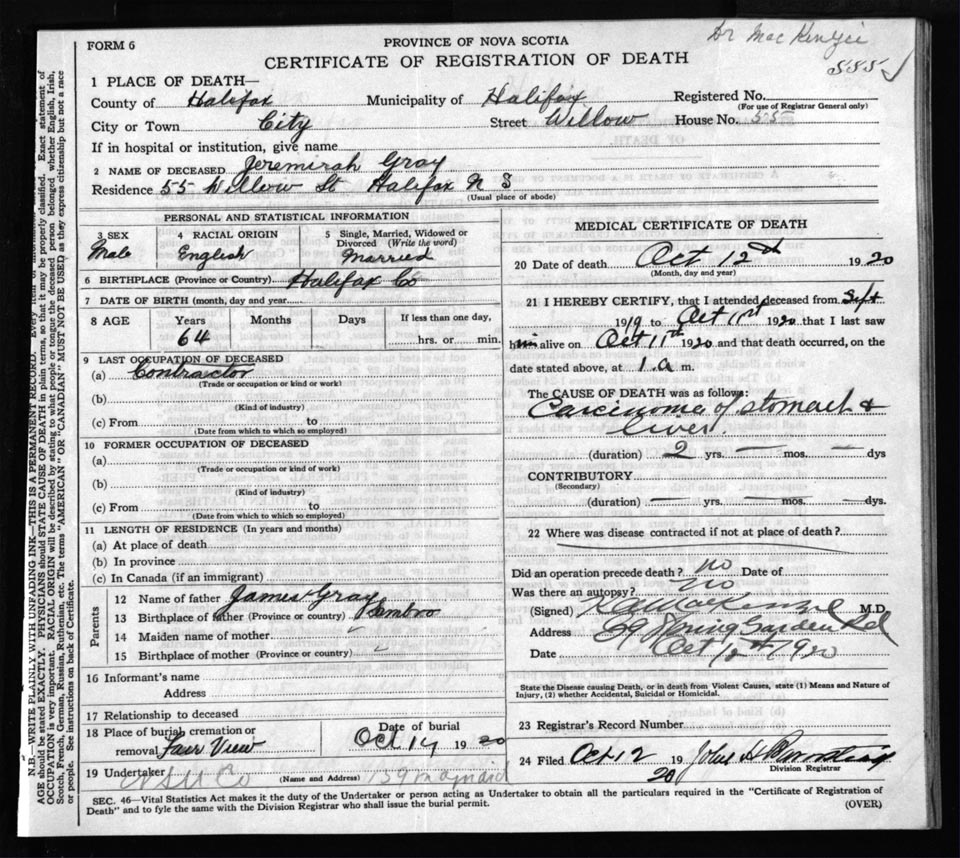 Dr MacKenzie
FORM 6
PROVINCE OF NOVA SCOTIA
CERTIFICATE OF REGISTRATION OF DEATH
585
1 PLACE OF DEATH—
County of Halifax Municipality of Halifax Registered No.
(For use of Registrar General only)
City or Town City Street Willow House No. 55
If in hospital or institution, give name
2 NAME OF DECEASED Jeremirah Gray
Residence 55 Willow St Halifax N S
(Usual place of abode)
PERSONAL AND STATISTICAL INFORMATION
3 SEX 4 RACIAL ORIGIN 5 Single, Married, Widowed or
Divorced (Write the word)
Male English Married
6 BIRTHPLACE (Province or Country) Halifax Co
7 DATE OF BIRTH (month, day and year)
8 AGE Years Months Days If less than one day,
64 hrs. or min.
9 LAST OCCUPATION OF DECEASED
(a) Contractor
(Trade or occupation or kind or work)
(b)
(Kind of industry)
(c) From to
(Date from which to which so employed)
10 FORMER OCCUPATION OF DECEASED
(a)
(Trade or occupation or kind of work)
(b)
(Kind of industry)
(c) From to
(Date from which to which so employed)
11 LENGTH OF RESIDENCE (In years and months)
(a) At place of death
(b) In province
(c) In Canada (if an immigrant)
Parents
12 Name of father James Gray
13 Birthplace of father (Province or country) Sambro
14 Maiden name of mother
15 Birthplace of mother (Province or country)
16 Informant's name
Address
17 Relationship to deceased
18 Place of burial, cremation or Date of burial
removal Fair View Oct 14 1920
19 Undertaker N S U Co
(Name and Address)
MEDICAL CERTIFICATE OF DEATH
20 Date of death Oct 12 1920
(Month, day and year)
21 I HEREBY CERTIFY, that I attended deceased from Sept
1919 to Oct 11 1920 that I last saw
him alive on Oct 11th 1920 and that death occurred, on the
date stated above, at 1 a m.
The CAUSE OF DEATH was as follows:
Carcinoma of stomach &
liver
(duration) 2 yrs. — mos. — dys
CONTRIBUTORY
(Secondary)
(duration) — yrs. — mos. — dys.
22 Where was disease contracted if not at place of death?
Did an operation precede death? no Date of
Was there an autopsy? no
(Signed) MacKenzie M.D
Address 69 Spring Garden Rd
Date Oct 12th 1920
State the Disease causing Death, or in death from Violent Causes, state (1) Means and Nature of
Injury, (2) whether Accidental, Suicidal or Homicidal.
23 Registrar's Record Number
24 Filed Oct 12 1920 John
Division Registrar
SEC. 46—Vital Statistics Act makes it the duty of the Undertaker or person acting as Undertaker to obtain all the particulars required in the "Certificate of Registration of
Death" and to fyle the same with the Division Registrar who shall issue the burial permit.
(OVER)
N.B.—WRITE PLAINLY WITH UNFADING INK—THIS IS A PERMANENT RECORD. Every item of
AGE should be stated EXACTLY. PHYSICIANS should STATE CAUSE OF DEATH in plain terms, so that it may be properly classified. Exact statement of
OCCUPATION is very important. RACIAL ORIGIN will be described by stating to what people or tongue the deceased person belonged whether English, Irish,
Scotch, French, German, Russian, Ruthenian, etc. The terms "AMERICAN" OR "CANADIAN" MUST NOT BE USED as they express citizenship but not a race
or people. See instructions on back of Certificate.